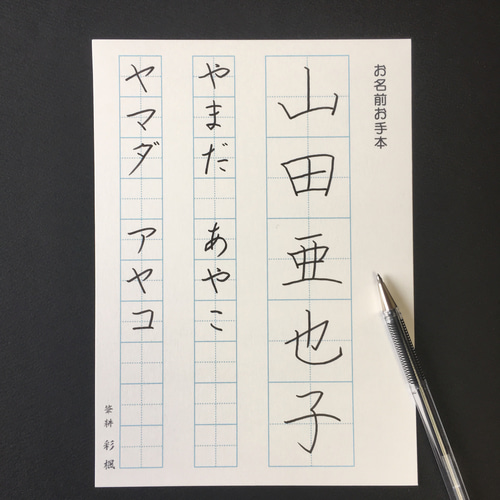 お名前お手本
山田亜也子
やまだ あやこ
ヤマダ アヤコ
筆耕 彩楓